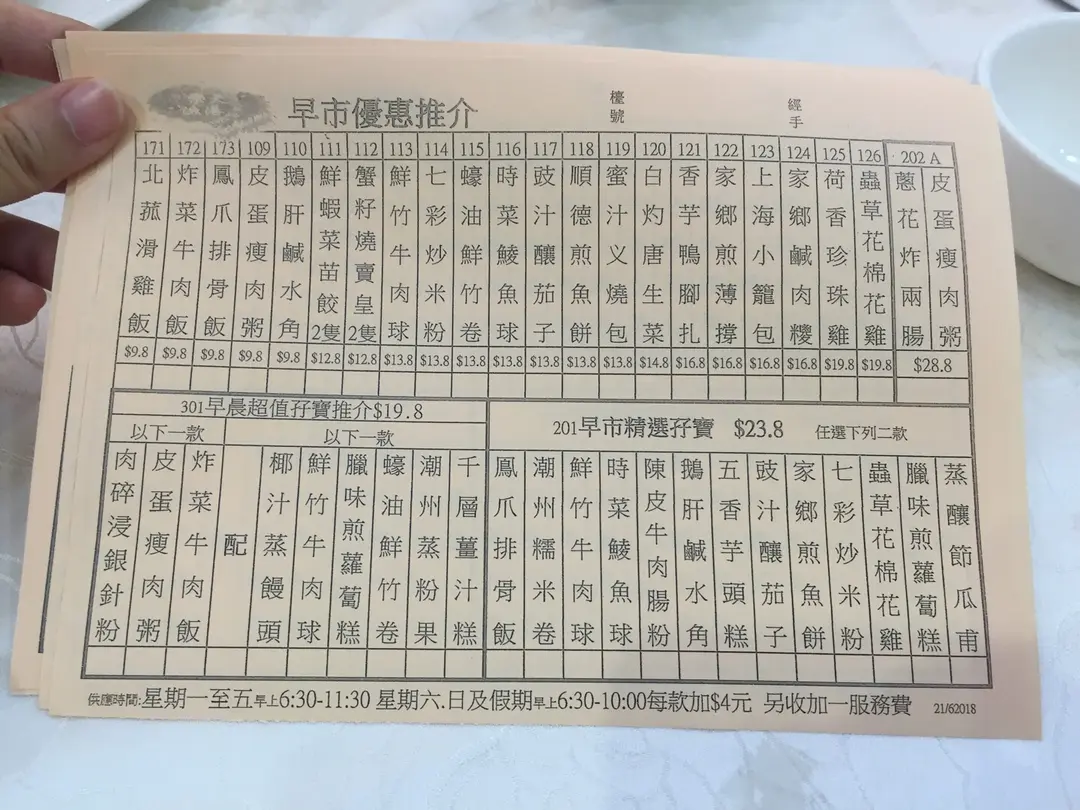 早市優惠推介
檯號
經手
171 172 173 109 110 111 112 113 114 115 116 117 118 119 120 121 122 123 124 125 126 202 A
北菰滑雞飯
炸菜牛肉飯
鳳爪排骨飯
皮蛋瘦肉粥
鵝肝鹹水角
鮮蝦菜苗餃2隻
蟹籽燒賣皇2隻
鮮竹牛肉球
七彩炒米粉
蠔油鮮竹卷
時菜鯪魚球
豉汁釀茄子
順德煎魚餅
蜜汁义燒包
白灼唐生菜
香芋鴨腳扎
家鄉煎薄撐
上海小籠包
家鄉鹹肉糭
荷香珍珠雞
蟲草花棉花雞
蔥花炸兩腸
皮蛋瘦肉粥
$9.8 $9.8 $9.8 $9.8 $9.8 $12.8 $12.8 $13.8 $13.8 $13.8 $13.8 $13.8 $13.8 $13.8 $14.8 $16.8 $16.8 $16.8 $16.8 $19.8 $19.8 $28.8
301早晨超值孖寶推介$19.8
以下一款
以下一款
肉碎浸銀針粉
皮蛋瘦肉粥
炸菜牛肉飯
配
椰汁蒸饅頭
鮮竹牛肉球
臘味煎蘿蔔糕
蠔油鮮竹卷
潮州蒸粉果
千層薑汁糕
201早市精選孖寶 $23.8 任選下列二款
鳳爪排骨飯
潮州糯米卷
鮮竹牛肉球
時菜鯪魚球
陳皮牛肉腸粉
鵝肝鹹水角
五香芋頭糕
豉汁釀茄子
家鄉煎魚餅
七彩炒米粉
蟲草花棉花雞
臘味煎蘿蔔糕
蒸釀節瓜甫
供應時間:星期一至五早上6:30-11:30 星期六.日及假期早上6:30-10:00每款加$4元 另收加一服務費 21/62018